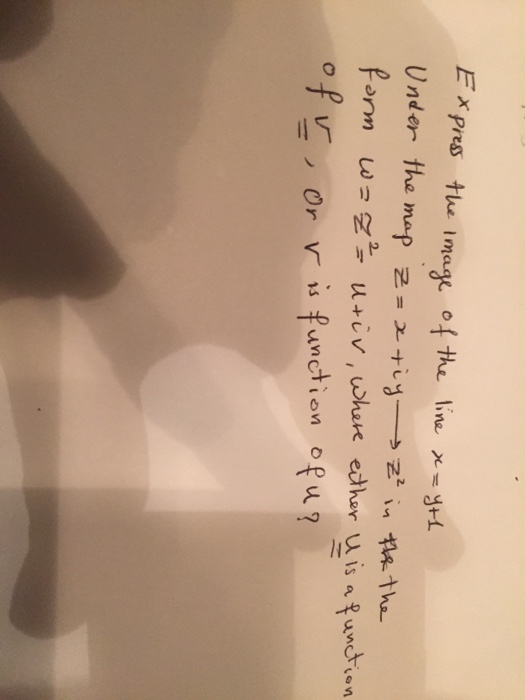 Express the image of the line x = y+1
Under the map z = x + iy → z² in the
form w = z² = u + iv, where either u is a function
of v, or v is function of u?